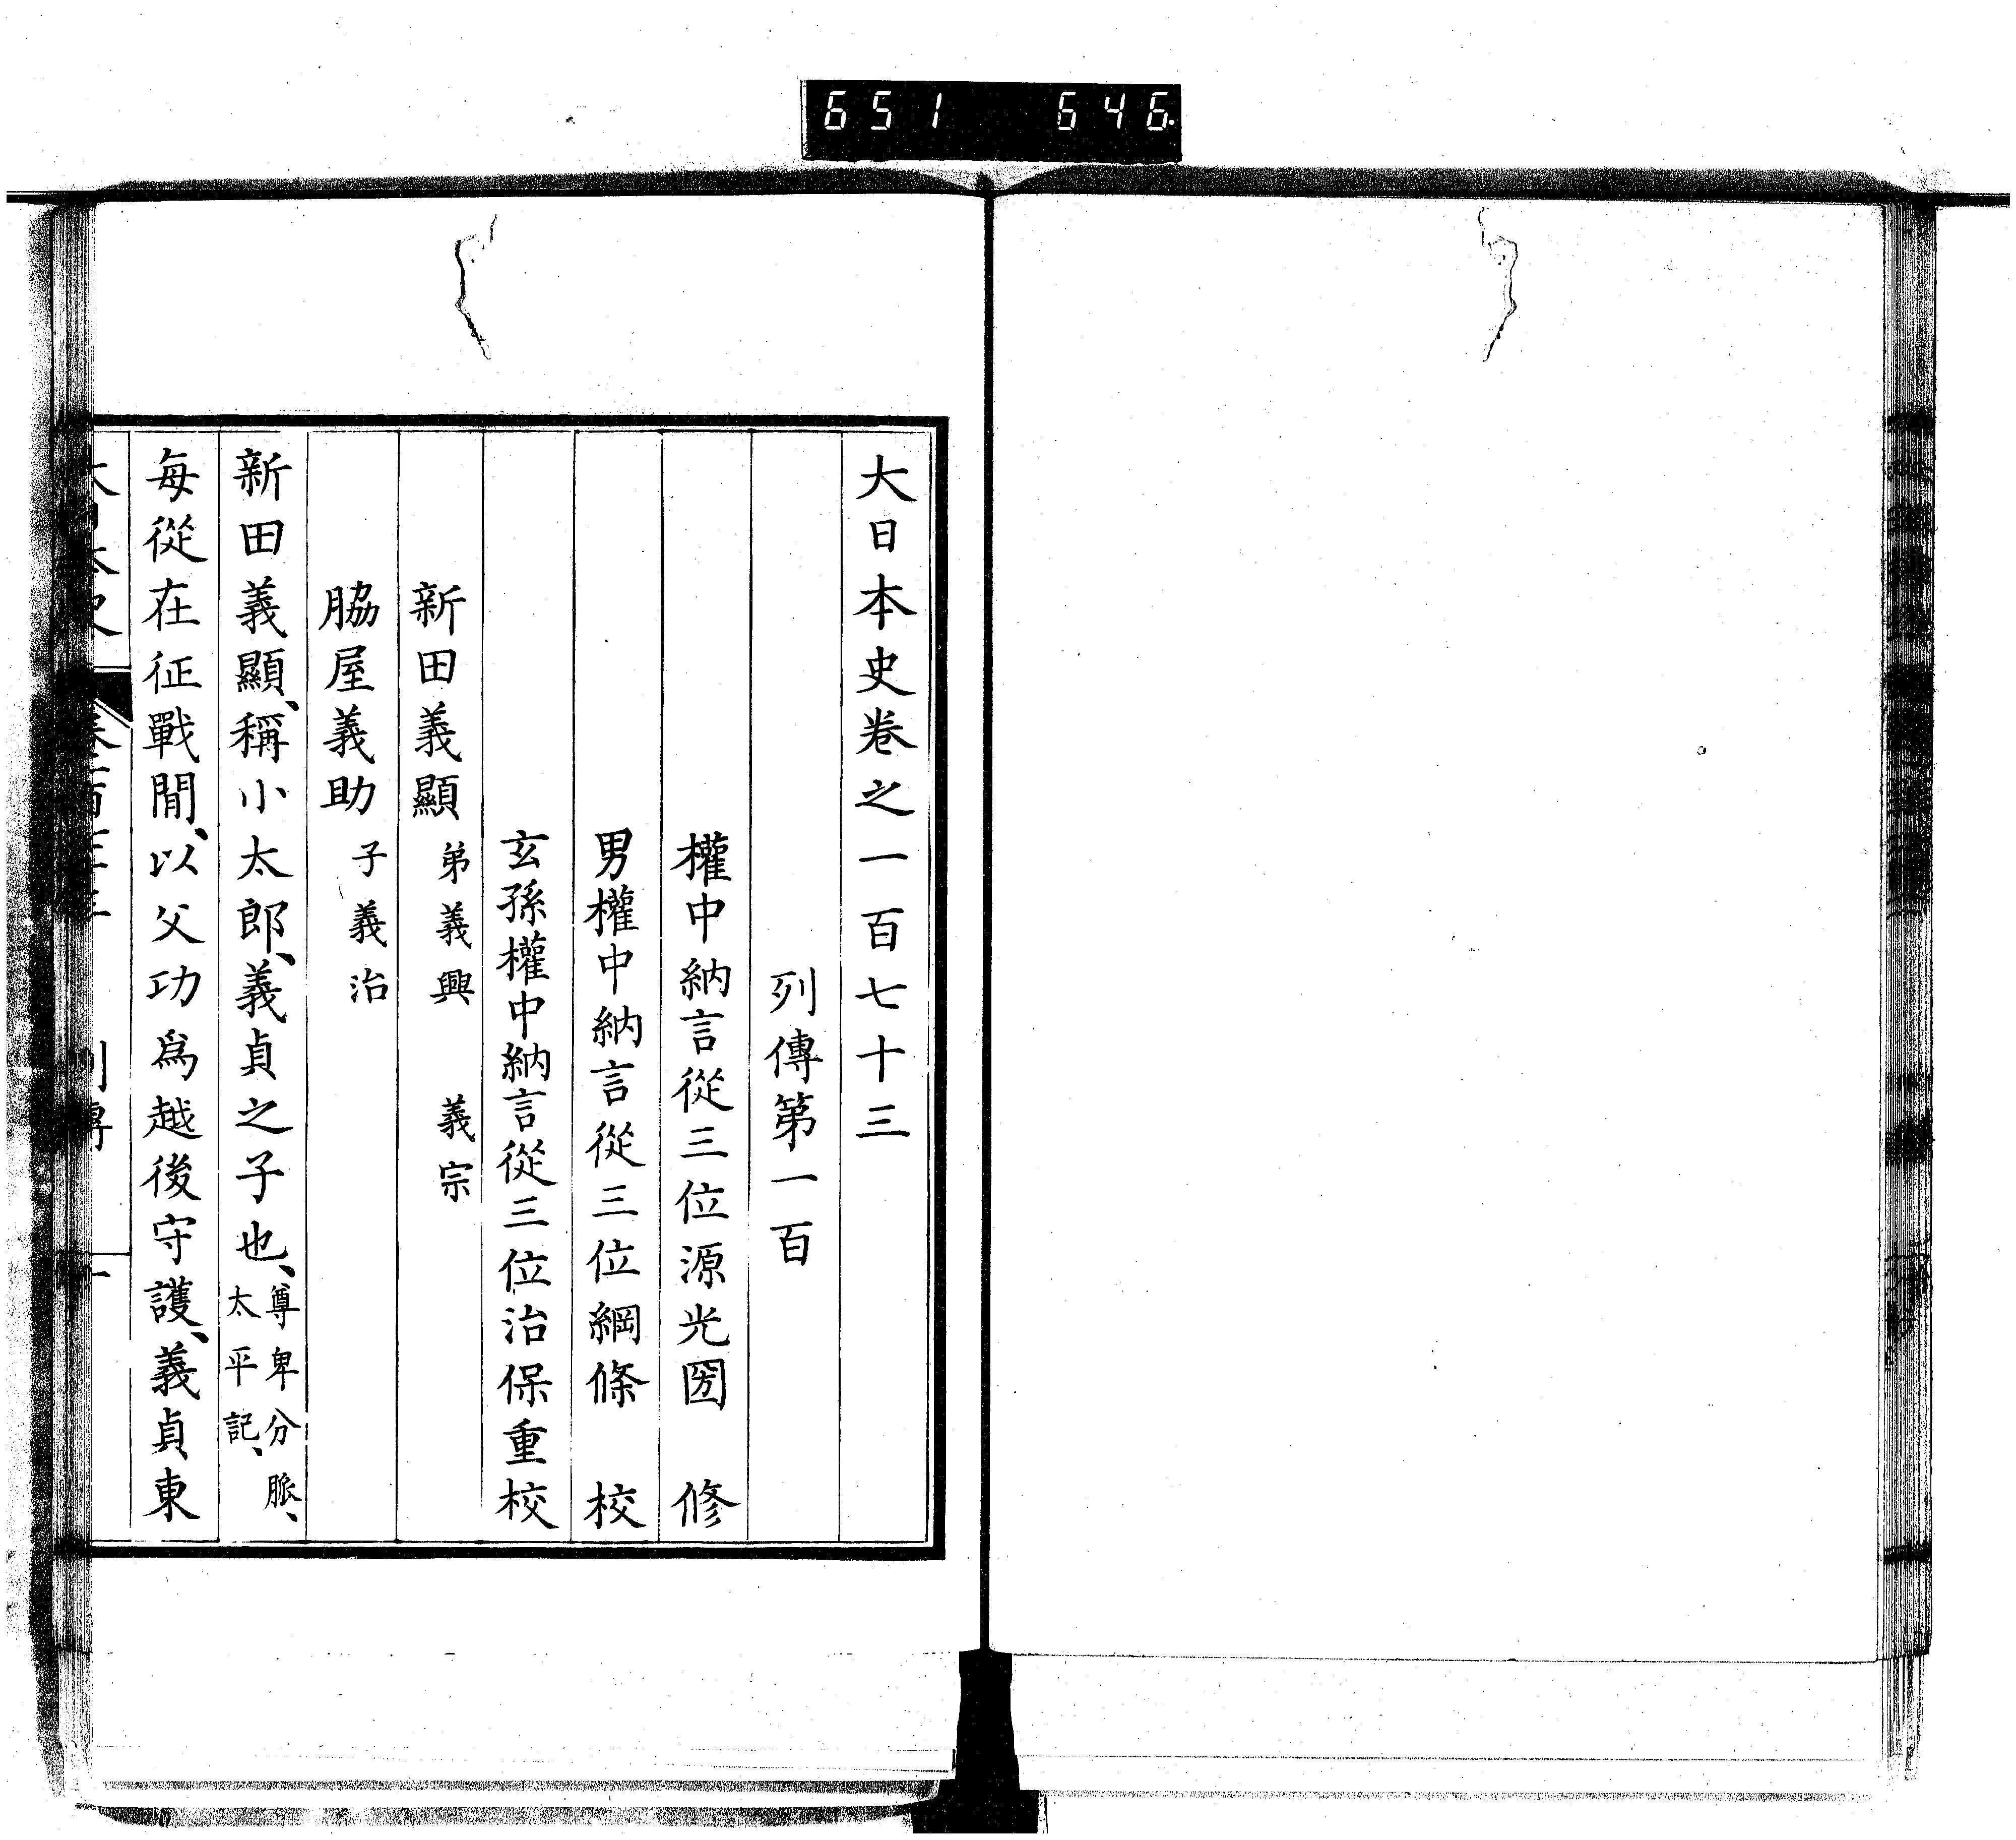 651 646
大日本史卷之一百七十三
列傳第一百
權中納言從三位源光圀 修
男權中納言從三位綱條 校
玄孫權中納言從三位治保重校
新田義顯 弟義興 義宗
脇屋義助 子義治
新田義顯、稱小太郎、義貞之子也、尊卑分脈、太平記、
每從在征戰間、以父功爲越後守護、義貞東